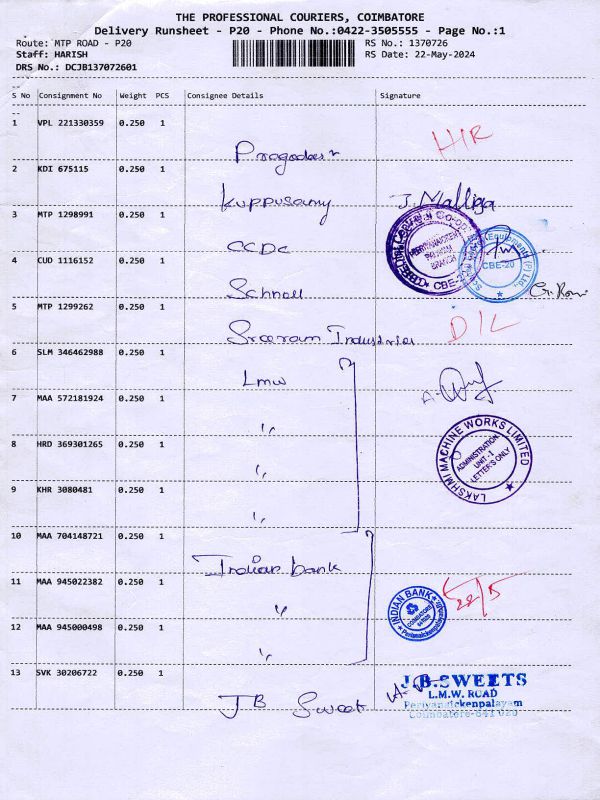 THE PROFESSIONAL COURIERS, COIMBATORE
Delivery Runsheet - P20 - Phone No.:0422-3505555 - Page No.:1
Route: MTP ROAD - P20
RS No.: 1370726
Staff: HARISH
RS Date: 22-May-2024
DRS No.: DCJB137072601
S No Consignment No Weight PCS Consignee Details Signature
1 VPL 221330359 0.250 1 H/R
2 KDI 675115 0.250 1 Kuppusamy J. Malliga
3 MTP 1298991 0.250 1 CCDC
4 CUD 1116152 0.250 1 Schnell
CBE-20
5 MTP 1299262 0.250 1 Sreeram Industries D/L
6 SLM 346462988 0.250 1 Lmw
7 MAA 572181924 0.250 1 "
8 HRD 369301265 0.250 1 "
LAKSHMI MACHINE WORKS LIMITED
ADMINISTRATION
UNIT-1
LETTER'S ONLY
9 KHR 3080481 0.250 1 "
10 MAA 704148721 0.250 1 Indian bank
11 MAA 945022382 0.250 1 "
INDIAN BANK
22/5
12 MAA 945000498 0.250 1 "
13 SVK 30206722 0.250 1 JB Sweet
J.B.SWEETS
L.M.W. ROAD
Periyanaickenpalayam
Coimbatore-641 020